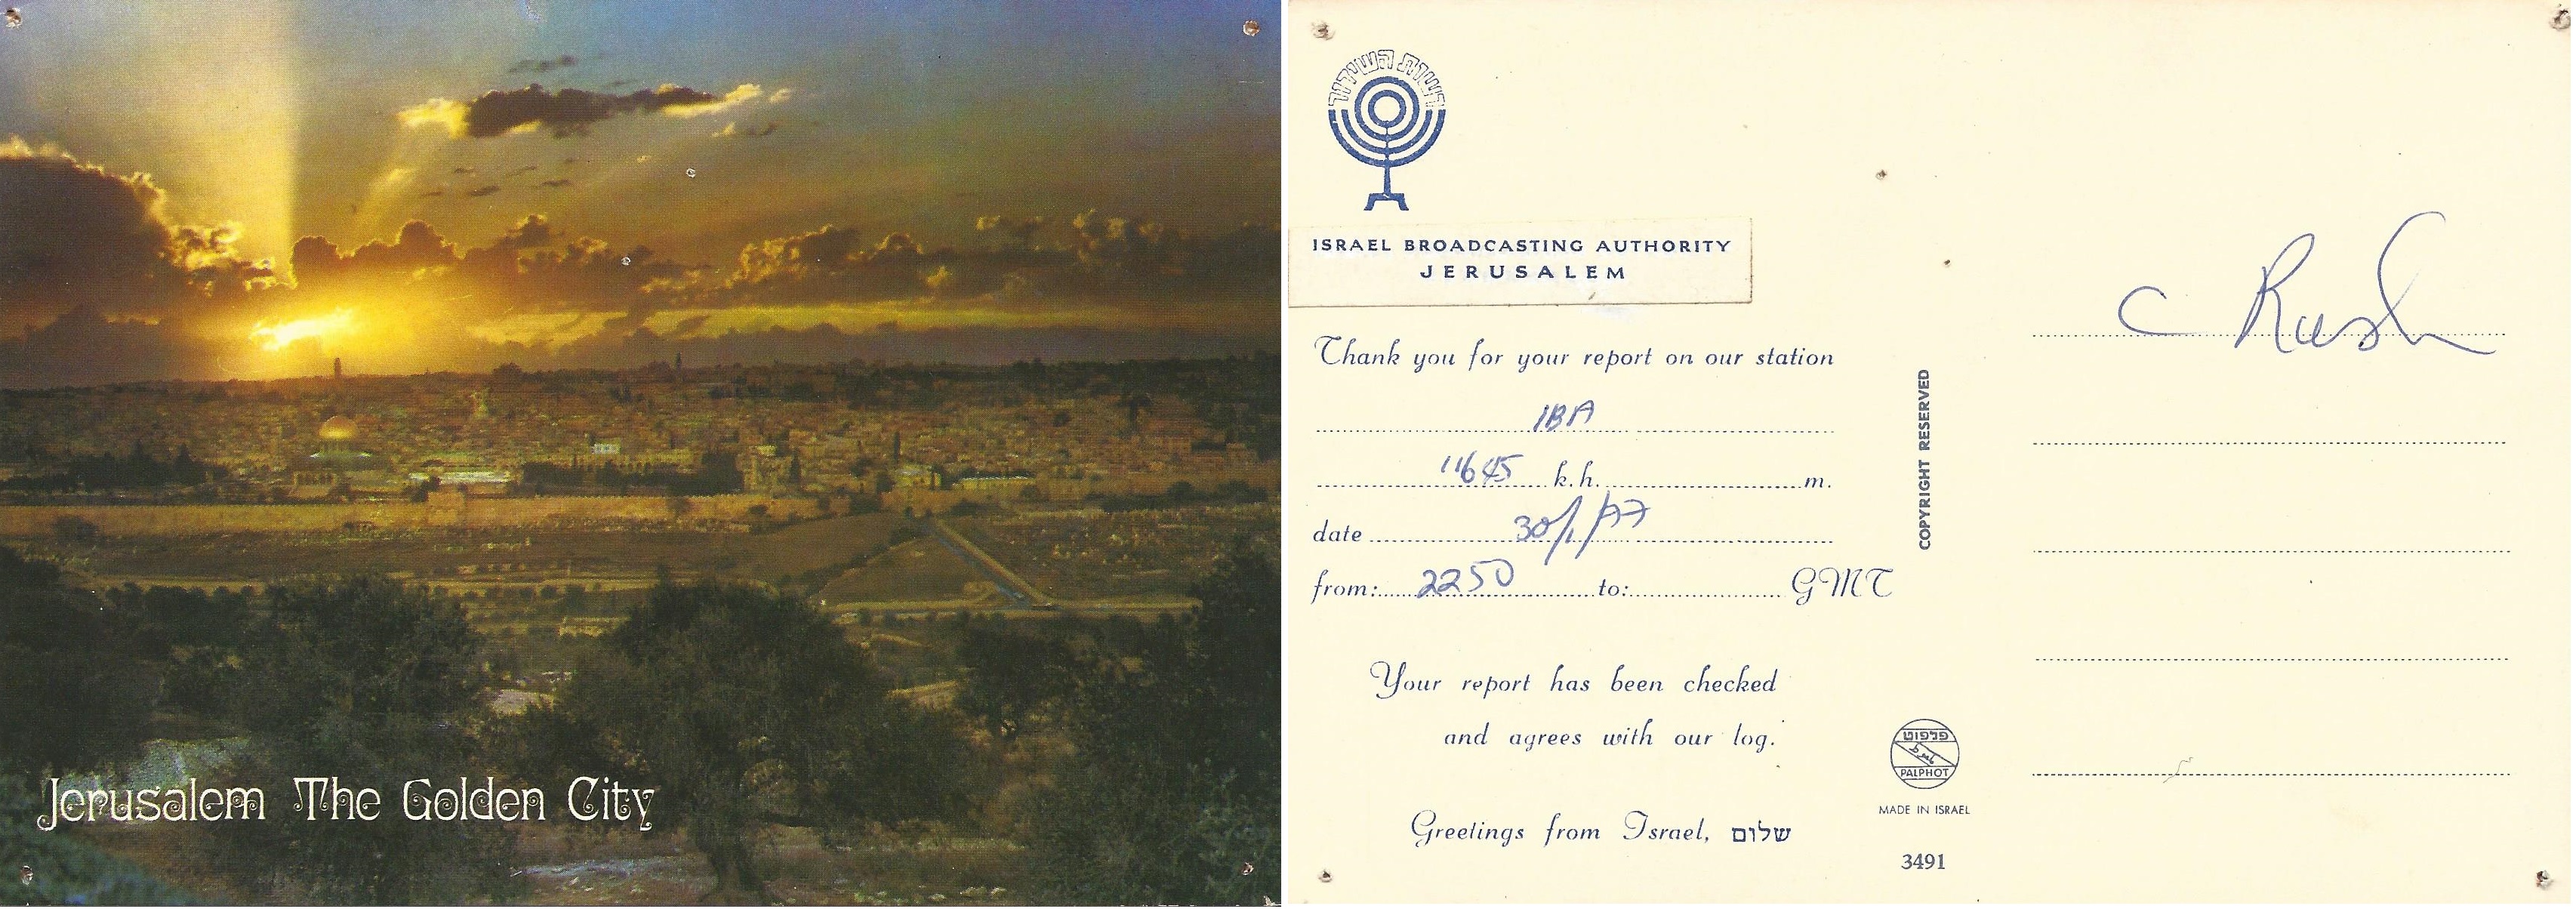 Jerusalem The Golden City
רשות השידור
ISRAEL BROADCASTING AUTHORITY
JERUSALEM
Thank you for your report on our station
IBA
11645 k.h. m.
date 30/1/77
from: 2250 to: GMT
Your report has been checked
and agrees with our log.
Greetings from Israel, שלום
COPYRIGHT RESERVED
פלפוט
PALPHOT
MADE IN ISRAEL
3491
C Rush